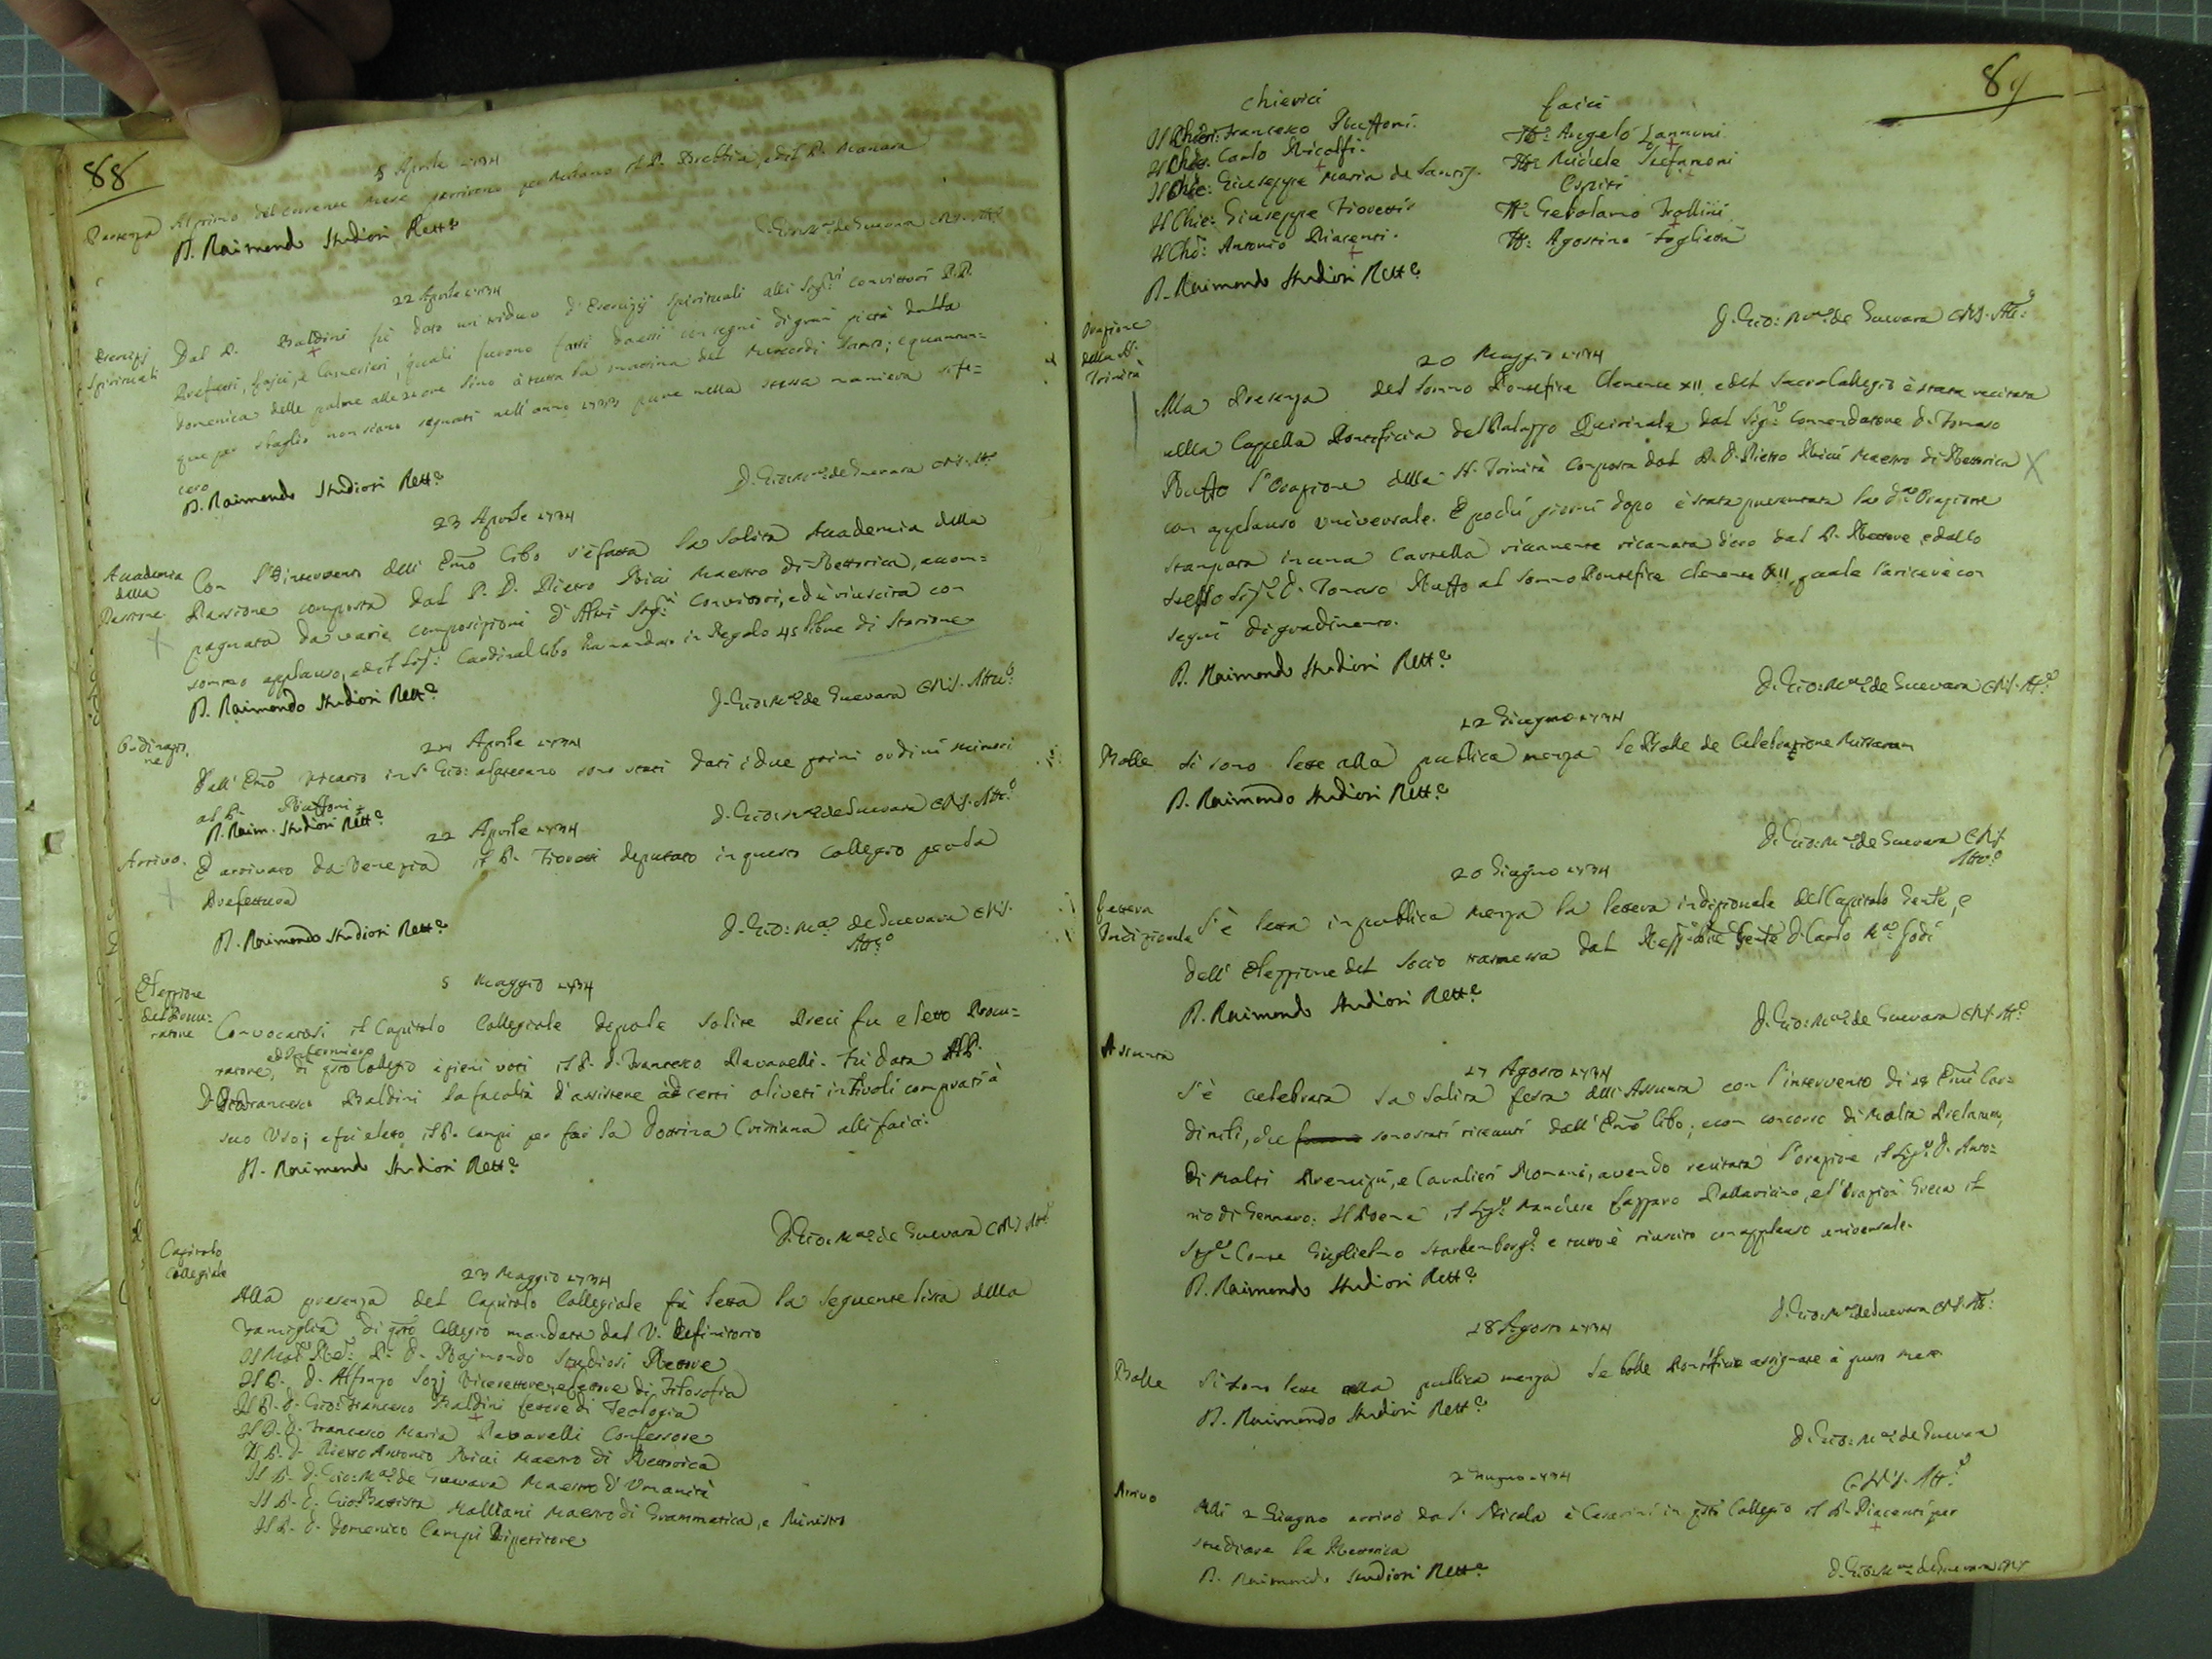 88
8 Aprile 1734
Partenza Al primo del corrente mese partirono per Milano il P. Brebbia, e del P. Manara
D. Raimondo Studiosi Rett.e
D. Gio: M.a de Guevara CRS. Att.o
22 Aprile 1734
Esercizij Spirituali
Dal P. Baldini fù dato un triduo d'Esercizij Spirituali alli Sig.ri Convittori P.P.
Prefetti, laici, e Camerieri, quali furono fatti da essi con segni di gran pietà dalla
Domenica delle palme alle 21 ore sino à tutta la mattina del Mercordi Santo; e quantun=
que per sbaglio non siano segnati nell'anno 1733 pure nella stessa maniera si fe=
cero
D. Raimondo Studiosi Rett.e
D. Gio: M.a de Guevara CRS. Att.o
23 Aprile 1734
Accademia della Passione
Con l'intervento dell' Em̃o Cibo s'è fatta la solita Accademia della
Passione composta dal P. D. Pietro Ricci Maestro di Rettorica, accom=
pagnata da varie composizioni d'Altri Sig.ri Convittori, ed è riuscita con
sommo applauso, ed il Sig.r Cardinal Cibo hà mandato in Regalo 45 libre di Storione
D. Raimondo Studiosi Rett.e
D. Gio: M.a de Guevara CRS. Att.o
Ordinazione
24 Aprile 1734
Dall' Em̃o Vicario in S. Gio: Laterano sono stati dati i due primi ordini minori
al P. Ruffoni
D. Raim. Studiosi Rett.e
D. Gio: M.a de Guevara CRS. Att.o
22 Aprile 1734
Arrivo.
È arrivato da Venezia il P. Fiovetti deputato in questo Collegio per la
Prefettura
D. Raimondo Studiosi Rett.e
D. Gio: M.a de Guevara CRS.
Att.o
5 Maggio 1734
Elezzione del Procuratore
Convocatosi il Capitolo Collegiale dopo le solite Preci fu eletto Procu=
ratore, ed Infermiero di q̃sto Collegio à pieni voti il P. D. Francesco Vavavelli. Fu data Al P.
D. Gio: Francesco Baldini la facoltà d'assistere ad certi oliveti in Tivoli comprati à
suo Uso; e fu eletto il P. Campi per far la Dottrina Cristiana alli laici.
D. Raimondo Studiosi Rett.e
D. Gio: M.a de Guevara CRS Att.o
Capitolo Collegiale
23 Maggio 1734
Alla presenza del Capitolo Collegiale fù letta la seguente lista della
Famiglia di q̃sto Collegio mandata dal V. Definitorio
Il Mol. Red. P. D. Raimondo Studiosi Rettore
Il P. D. Alfonzo Sozj Vicerettore, e lettore di Filosofia
Il P. D. Gio: Francesco Baldini lettore di Teologia
Il P. D. Francesco Maria Vavavelli Confessore
Il P. D. Pietro Antonio Ricci Maestro di Rettorica
Il P. D. Gio: M.a de Guevara Maestro d'Umanità
Il P. D. Gio: Battista Malliani Maestro di Grammatica, e Ministro
Il P. D. Domenico Campi Ripetitore
89
Chierici
Il Chier: Francesco Ruffoni.
Il Chier: Carlo Ricolfi.
Il Chie: Giuseppe Maria de Santis.
Il Chie: Giuseppe Fiovetti
Il Che: Antonio Piacenti.
Laici
Fr: Angelo Zannoni
Fr: Michele Stefanoni
Ospiti
Fr. Gerolamo Trollini
Fr: Agostino Foglietta
D. Raimondo Studiosi Rett.e
D. Gio: M.a de Guevara CRS. Att.o
Orazione della SS. Trinità
20 Maggio 1734
Alla Presenza del Sommo Pontefice Clemente XII. e del Sacro Collegio è stata recitata
nella Cappella Pontificia del Palazzo Quirinale dal Sig.r Commendatore D. Tomaso
Ruffo l'Orazione della SS. Trinità Composta dal P. D. Pietro Ricci Maestro di Rettorica
con applauso universale. E pochi giorni dopo è stata presentata la d.a Orazione
stampata in una Cartella riccamente ricamata d'oro dal P. Rettore, e dallo
stesso Sig.r D. Tomaso Ruffo al Sommo Pontefice Clemente XII, quale l'aricevè con
segni di gradimento.
D. Raimondo Studiosi Rett.e
D. Gio: M.a de Guevara CRS. Att.o
12 Giugno 1734
Bolle
Si sono lette alla publica mensa le Bolle de Celebratione Missarum
D. Raimondo Studiosi Rett.e
D. Gio: M.a de Guevara CRS
Att.o
20 Giugno 1734
Lettera Indizionale
S'è letta in publica mensa la lettera indizionale del Capitolo Gen̄le, e
dell' Elezzione del Socio trasmessa dal Gen̄le D. Carlo M.a Lodi
D. Raimondo Studiosi Rett.e
D. Gio: M.a de Guevara CRS. Att.o
Assunta
17 Agosto 1734
S'è celebrata la solita festa dell' Assunta con l'intervento di 18 Em̃i Car=
dinali, che sono stati ricevuti dall' Em̃o Cibo; e con concorso di Molta Prelatura,
di Molti Principi, e Cavalieri Romani, avendo recitata l'orazione il Sig.r D. Anto=
nio di Gennaro. Il Poema il Sig.r Marchese Gasparo Pallavicino, e l'orazion Greca il
Sig.r Conte Guglielmo Starhembergh e tutto è riuscito con applauso universale.
D. Raimondo Studiosi Rett.e
D. Gio: M.a de Guevara CRS. Att.o
28 Agosto 1734
Bolle
Si sono lette alla publica mensa le bolle Pontificie assignate à questo mese
D. Raimondo Studiosi Rett.e
D. Gio: M.a de Guevara
CRS. Att.o
2 Giugno 1734
Arrivo
Alli 2 Giugno arrivò da S. Nicola à Cesarini in q̃sto Collegio il P. Piacenti per
studiare la Rettorica
D. Raimondo Studiosi Rett.e
D. Gio: M.a de Guevara CRS